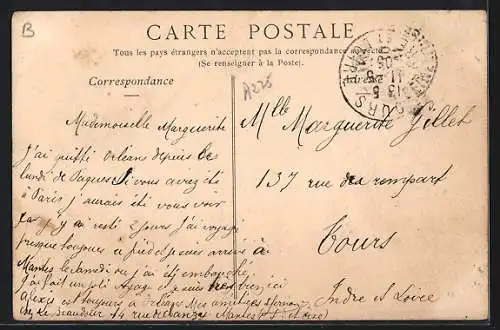 B
CARTE POSTALE
Tous les pays étrangers n'acceptent pas la correspondance au recto
(Se renseigner à la Poste).
Correspondance
A275
Mademoiselle Marguerite
J'ai quitté Orléans depuis le
lundi de Paques Si vous aviez été
à Paris j'aurais été vous voir
car j'y ai resté 2 jours J'ai voyagé
presque toujours a pied et je suis arrivé à
Mantes le Samedi ou j'ai été embauché
J'ai fait un joli voyage et je suis très bien ici
Alexis est toujours à Orléans Mes amitiés
14 rue Mantes
Mlle Marguerite Gillet
137 rue des rempart
Tours
Indre et Loire
TOURS